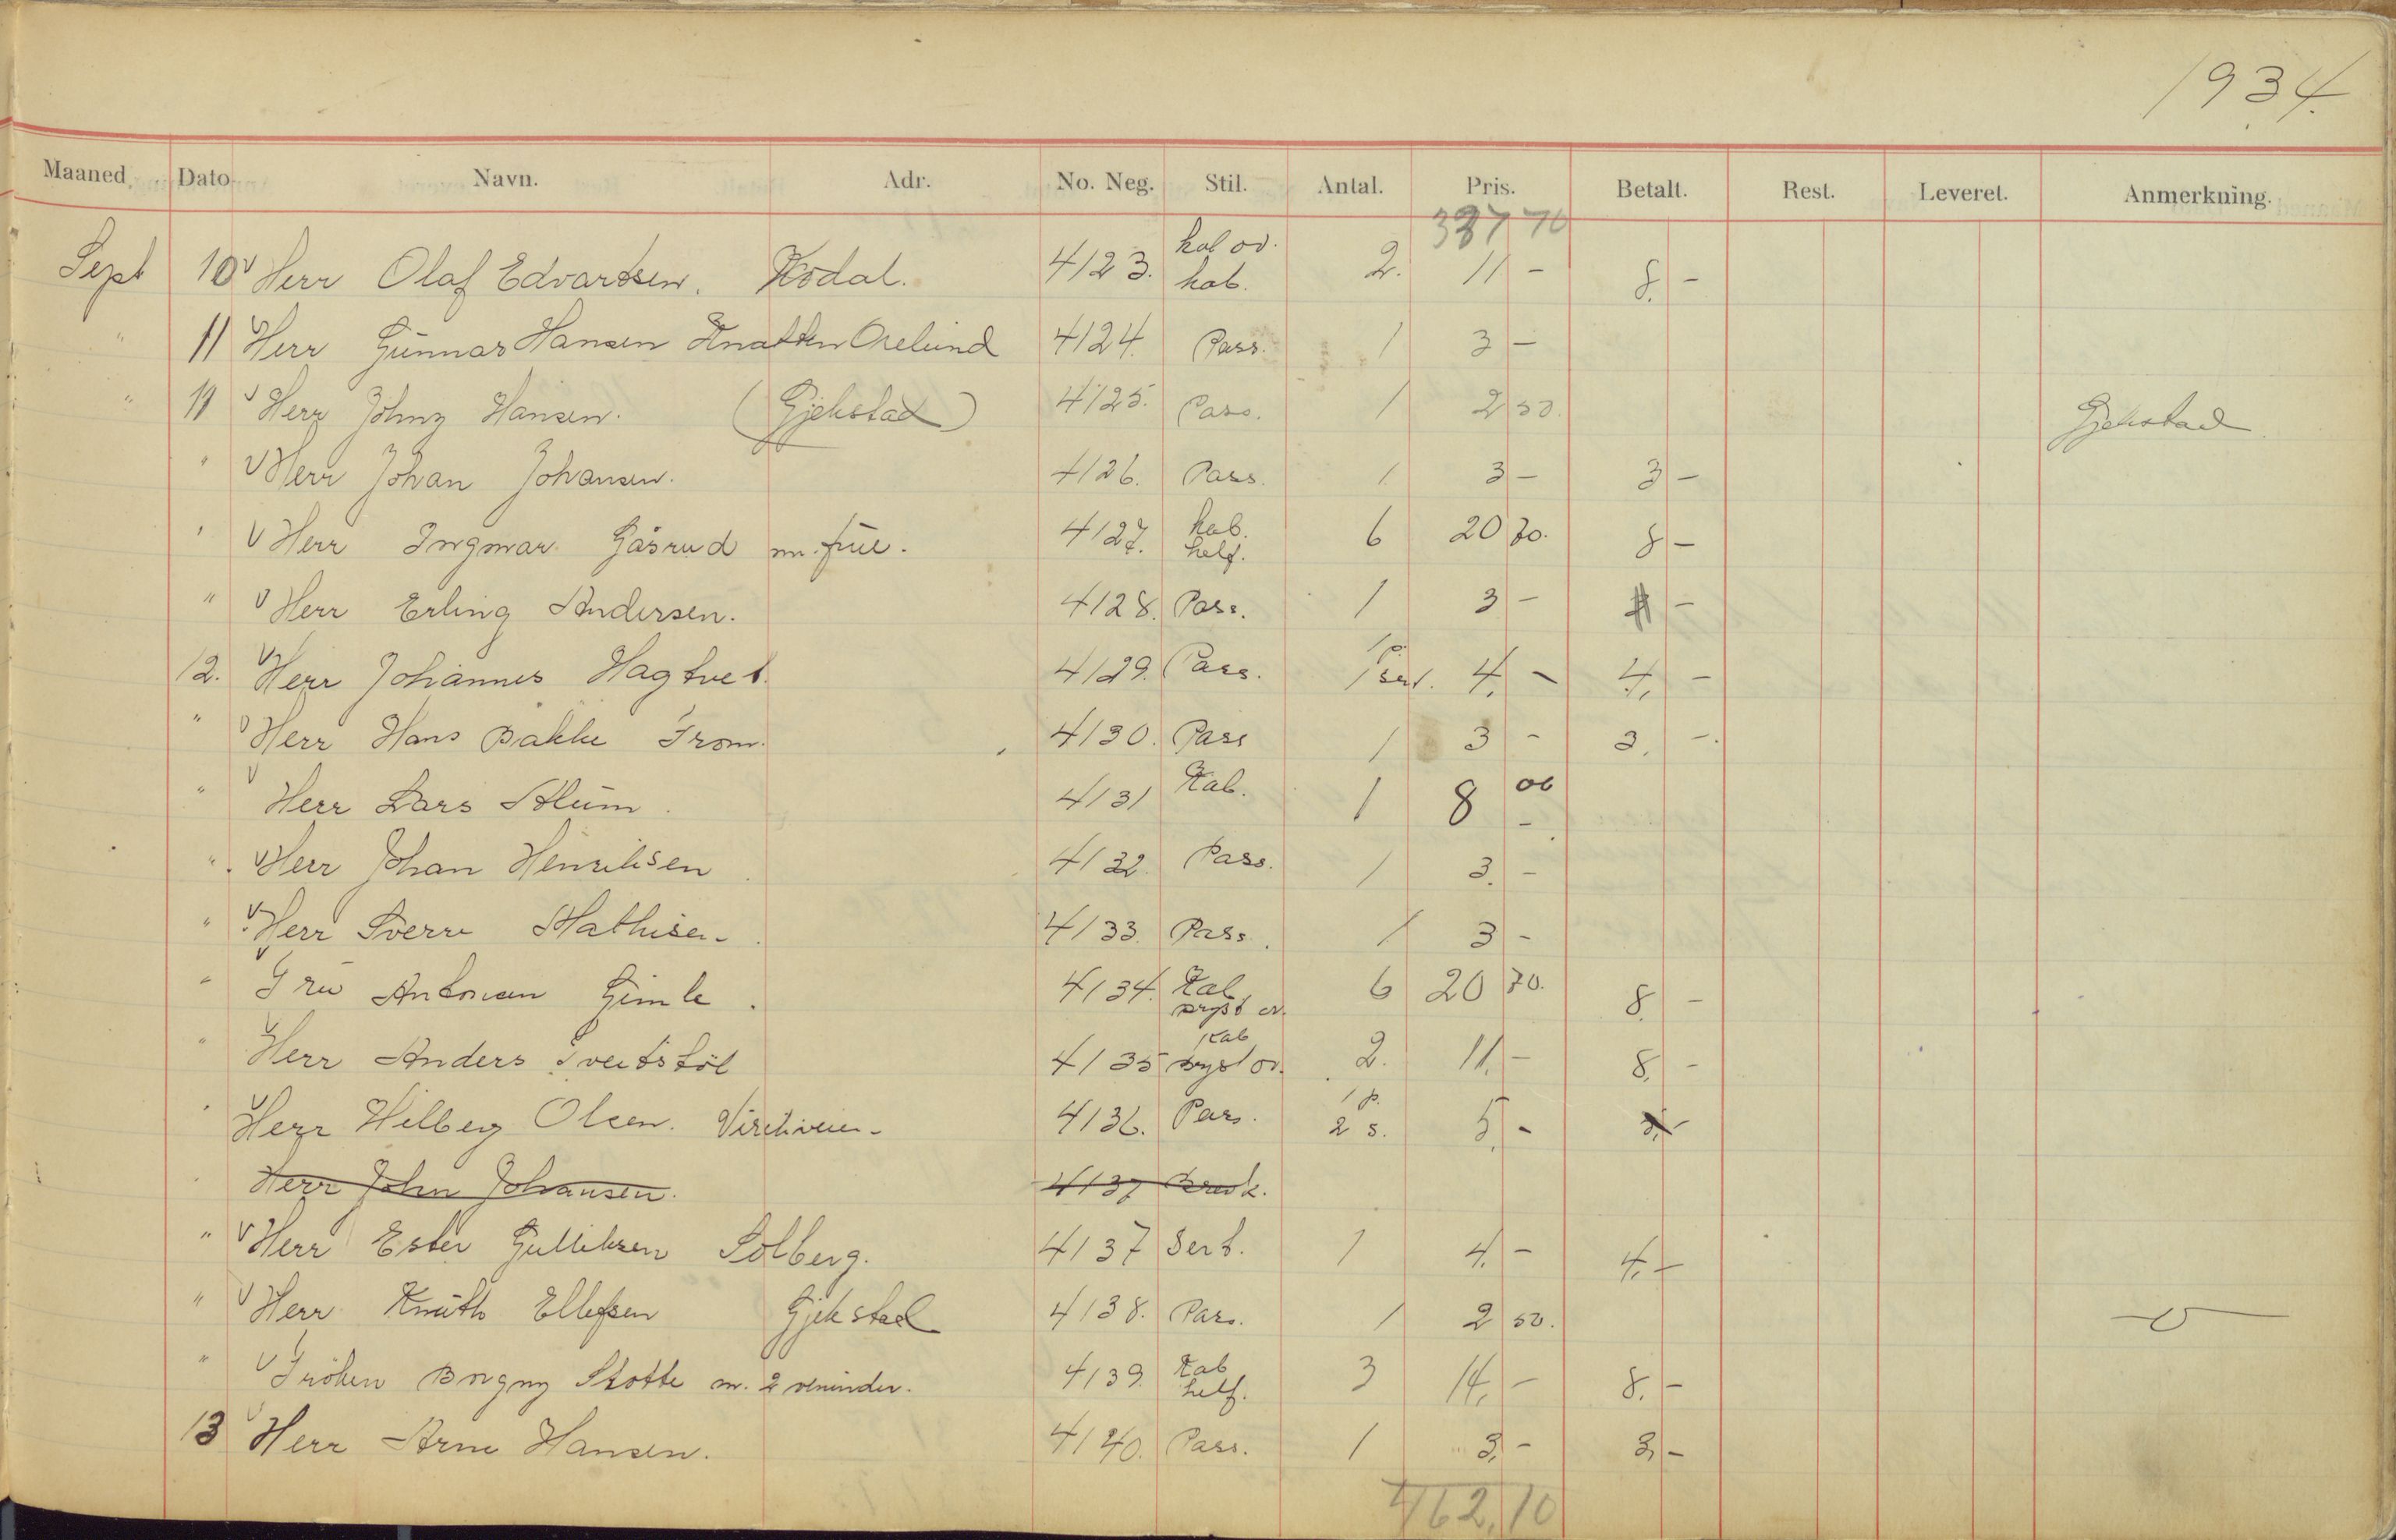 1934.
Maaned. Dato Navn. Adr. No. Neg. Stil. Antal. Pris. Betalt. Rest. Leveret. Anmerkning.
70
Sept 10 v Herr Olaf Edvartsen. Kodal. 4123. kab ov. kab. 2. 11 - 8. -
" 11 v Herr Gunnar Hansen Knatten Oselund 4124. Pass. 1 3 -
" 11 v Herr Johny Hansen. (Gjekstad) 4125. Pass. 1 2 50. Gjekstad
" v Herr Johan Johansen. 4126. Pass. 1 3 - 3 -
" v Herr Ingmar Gåsrud m. frue. 4127. kab. helf. 6 20 70. 8 -
" v Herr Erling Andersen. 4128. Pass. 1 3 - -
12. v Herr Johannes Hagtvet. 4129. Pass. 1 p. 1 ser. 4. - 4. -
" v Herr Hans Bakke From. 4130. Pass 1 3 - 3. -.
" v Herr Lars Alum. 4131 Kab. 1 8 00 -
" v Herr Johan Henriksen 4132. Pass. 1 3. -
" v Herr Sverre Mathisen 4133. Pass. 1 3 -
" v Fru Antonien Gimle. 4134. Kab. bryst ov. 6 20 70. 8. -
" v Herr Anders Sveitstöl 4135 Kab bryst ov. 2. 11. - 8. -
" v Herr Hilberg Olsen. 4136. Pass. 1 p. 2 s. 5. - 5. -
" Herr John Johansen. 4137 Brevk.
" v Herr Ester Gulliksen Solberg. 4137 Sert. 1 4. - 4. -
" v Herr Knuth Ellefsen Gjekstad 4138. Pass. 1 2 50.
" v Fröken Borgny Skotte m. 2 veninder. 4139. Kab helf. 3 14. - 8. -
13 v Herr Arne Hansen. 4140. Pass. 1 3. - 3. -
462,10